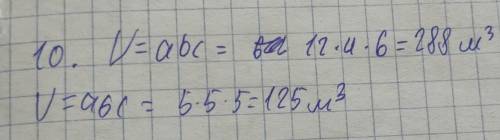 10. V=abc= 12·4·6=288 м³
V=abc= 5·5·5=125 м³